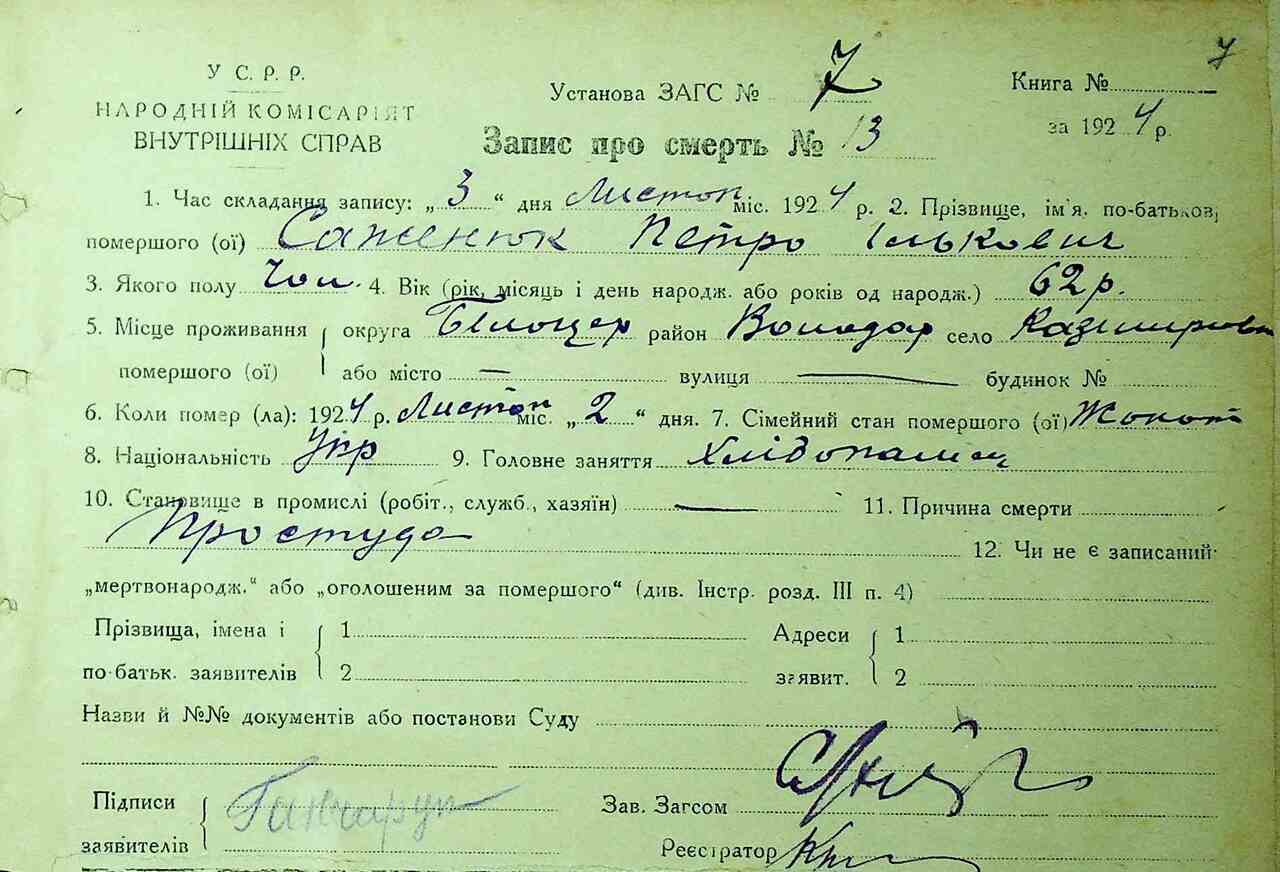 7
У С. Р. Р.
НАРОДНІЙ КОМІСАРІЯТ
ВНУТРІШНІХ СПРАВ
Установа ЗАГС № 7
Книга №
за 1924 р.
Запис про смерть № 13
1. Час складання запису: „ 3 “ дня Листоп міс. 1924 р. 2. Прізвище, ім'я, по-батькові
помершого (ої) Саженюк Петро Ількович
3. Якого полу Чол. 4. Вік (рік, місяць і день народж. або років од народж.) 62 р.
5. Місце проживання округа Білоцер район Володар село Казимировк
помершого (ої) або місто — вулиця — будинок №
6. Коли помер (ла): 1924 р. Листоп міс. „ 2 “ дня. 7. Сімейний стан помершого (ої) Жонат
8. Національність Укр 9. Головне заняття Хлібопашец
10. Становище в промислі (робіт., служб., хазяїн) — 11. Причина смерти
Простуда 12. Чи не є записаний
„мертвонародж.“ або „оголошеним за помершого“ (див. Інстр. розд. III п. 4)
Прізвища, імена і 1 Адреси 1
по-батьк. заявителів 2 заявит. 2
Назви й №№ документів або постанови Суду
Підписи Зав. Загсом
заявителів Реєстратор